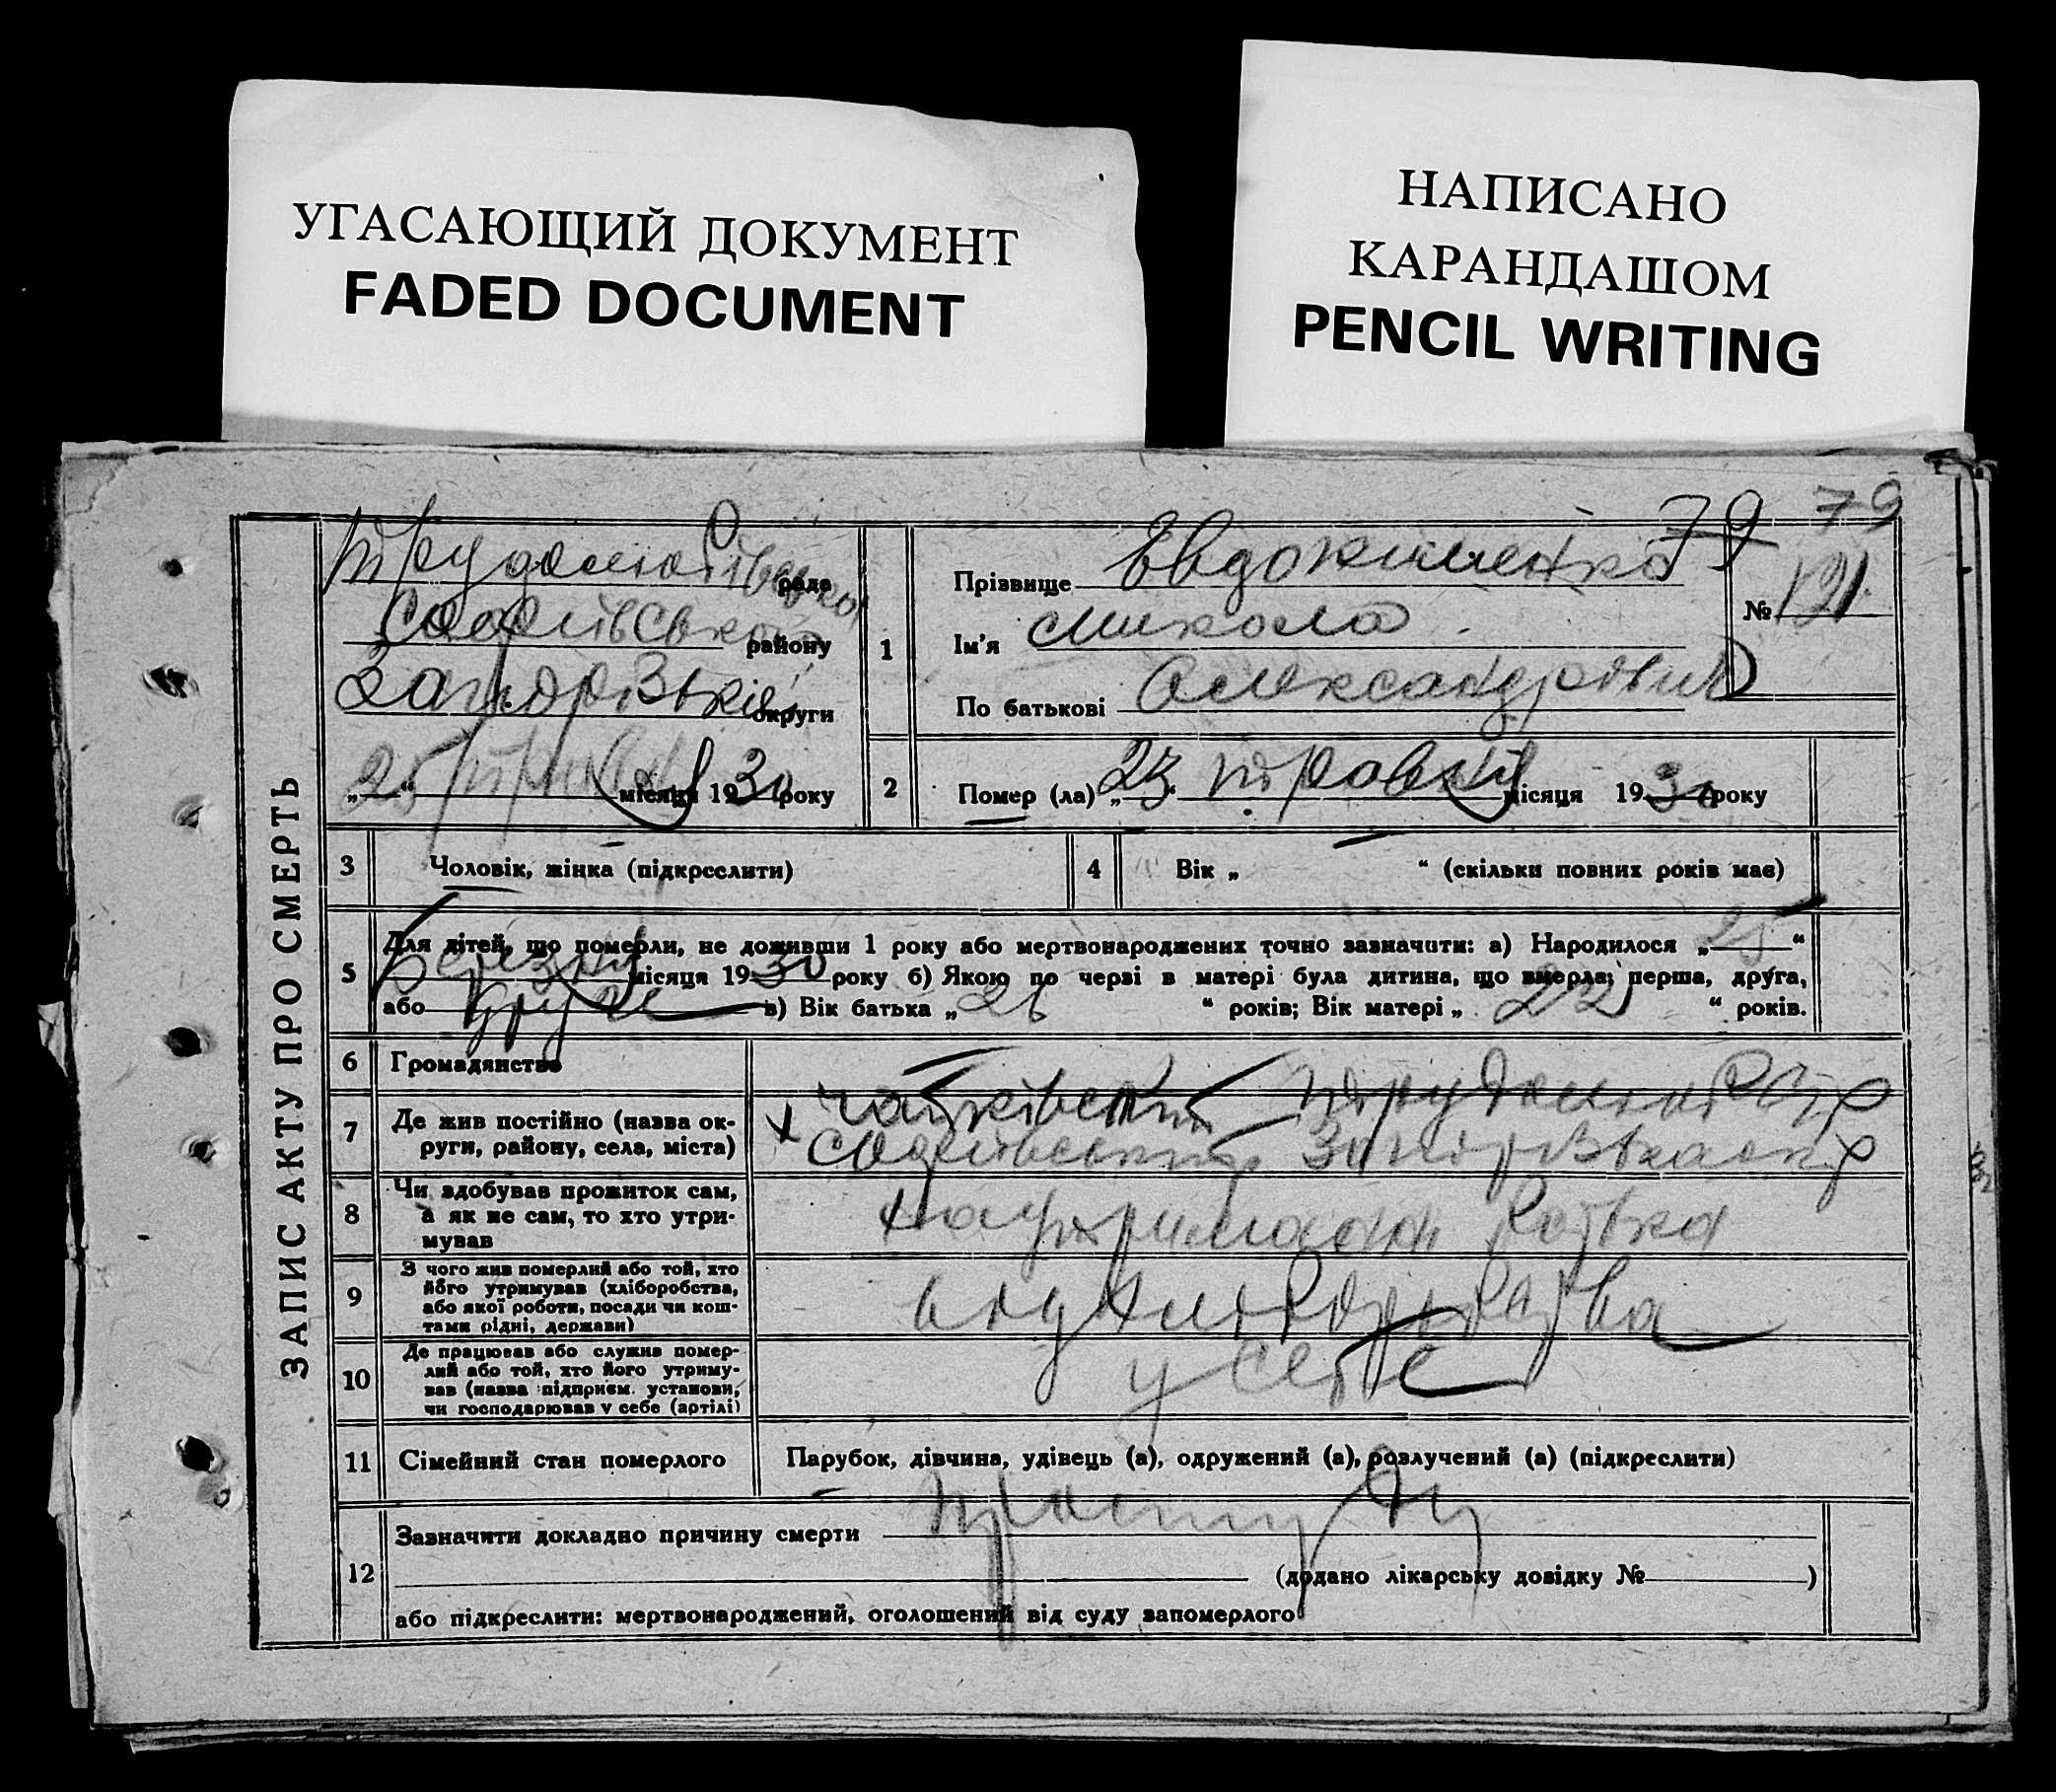 УГАСАЮЩИЙ ДОКУМЕНТ
FADED DOCUMENT
НАПИСАНО
КАРАНДАШОМ
PENCIL WRITING
79
79
ЗАПИС АКТУ ПРО СМЕРТЬ
рада
Софіївського району
округи
"25" місяця 1930 року
1
Прізвище Евдокименко
Ім'я Микола
По батькові Олександрович
№ 121
2
Помер (ла) "23" травня місяця 1930 року
3
Чоловік, жінка (підкреслити)
4
Вік „ “ (скільки повних років має)
5
Для дітей, що померли, не доживши 1 року або мертвонароджених точно зазначити: а) Народилося „25“
березня місяця 1930 року б) Якою по черзі в матері була дитина, що вмерла; перша, друга,
або друге в) Вік батька „26 “ років; Вік матері „ 22 “ років.
6
Громадянство
7
Де жив постійно (назва ок-
руги, району, села, міста)
8
Чи здобував прожиток сам,
а як не сам, то хто утри-
мував
батька
9
З чого жив померлий або той, хто
його утримував (хліборобства,
або якої роботи, посади чи кош-
тами рідні, держави)
10
Де працював або служив помер-
лий або той, хто його утриму-
вав (назва підприєм. установи,
чи господарював у себе (артілі)
у себе
11
Сімейний стан померлого
Парубок, дівчина, удівець (а), одружений (а), розлучений (а) (підкреслити)
12
Зазначити докладно причину смерти
(додано лікарську довідку № )
або підкреслити: мертвонароджений, оголошений від суду запомерлого